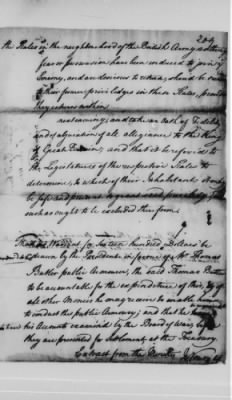 204
the States in the neighbourhood of the British Army as thro'
fear or persuasion have been induced to join the
Enemy, and are desirous to return, should be restored
to their former priviledges in these States, provided
they return within
and take an oath of Fidelity
and of abjuration of all allegiance to the King
of Great Britain; and that it be referred to
the Legislatures of the respective States to
determine, to which of their Inhabitants
such as ought to be excluded therefrom.
That a Warrant for sixteen hundred Dollars be
drawn by the President in favour of Mr. Thomas
Butler public Armourer, the said Thomas Butler
to be accountable for the expenditure of this, &
all other Monies he may receive to enable him
to conduct the public Armoury; and that he
his Accounts examined by the Board of War, before
they are presented for Settlement at the Treasury
Extract from the Minutes